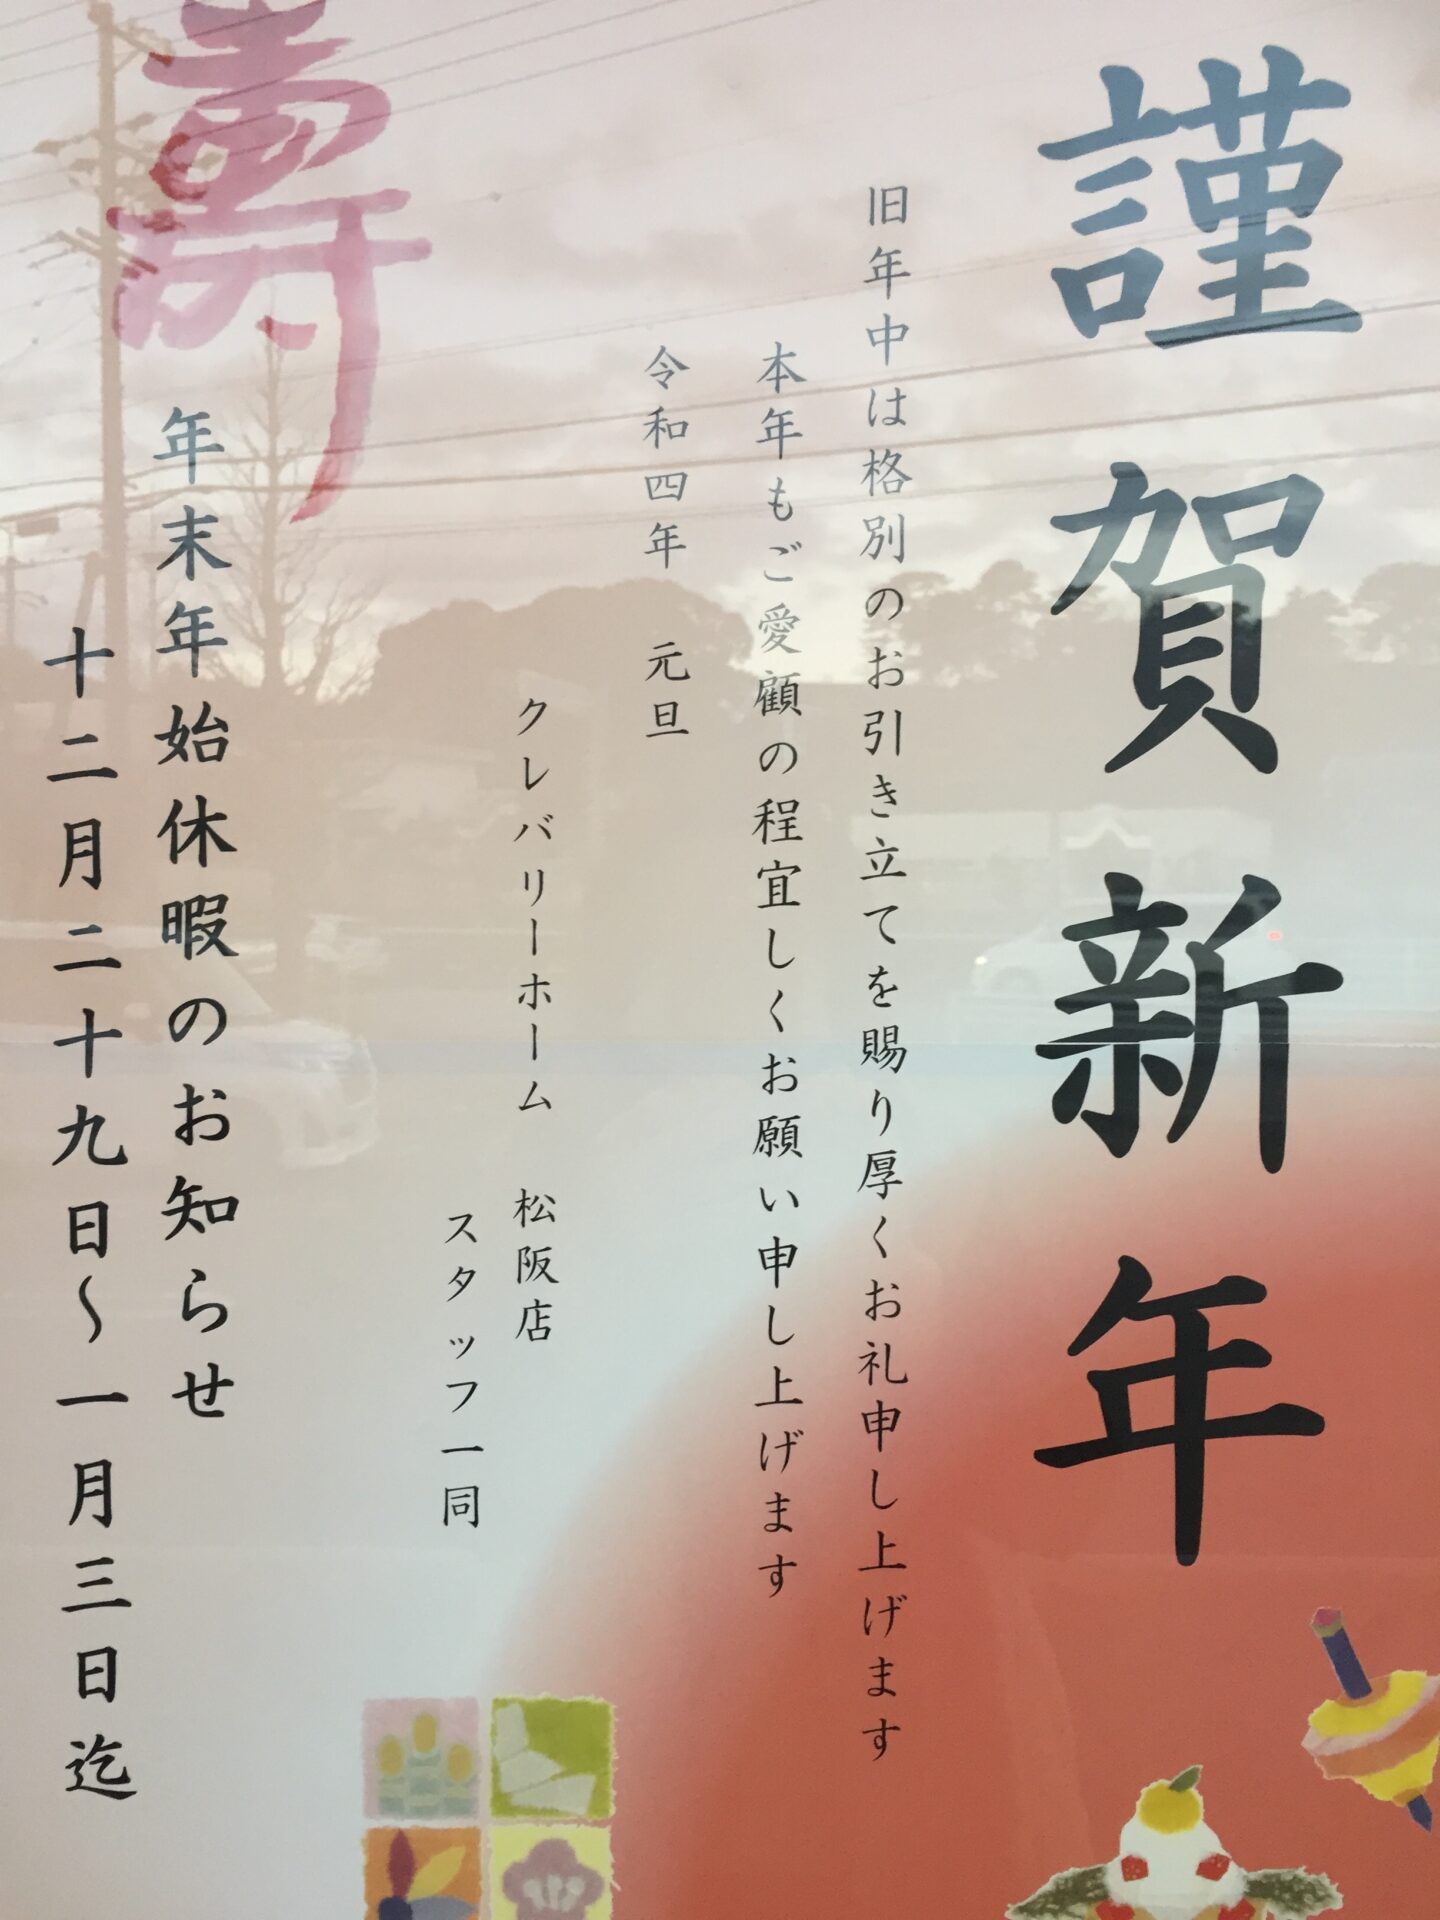 謹賀新年
旧年中は格別のお引き立てを賜り厚くお礼申し上げます
本年もご愛顧の程宜しくお願い申し上げます
令和四年　元旦
クレバリーホーム　松阪店
スタッフ一同
壽
年末年始休暇のお知らせ
十二月二十九日～一月三日迄